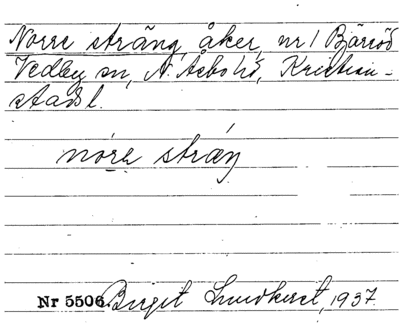 Norre sträng, åker, nr 1 Bjärröd
Vedby sn, N. Åsbo hd, Kristian-
stads l.
nǫre stráŋ
Nr 5506. Birgit Lundkvist, 1937